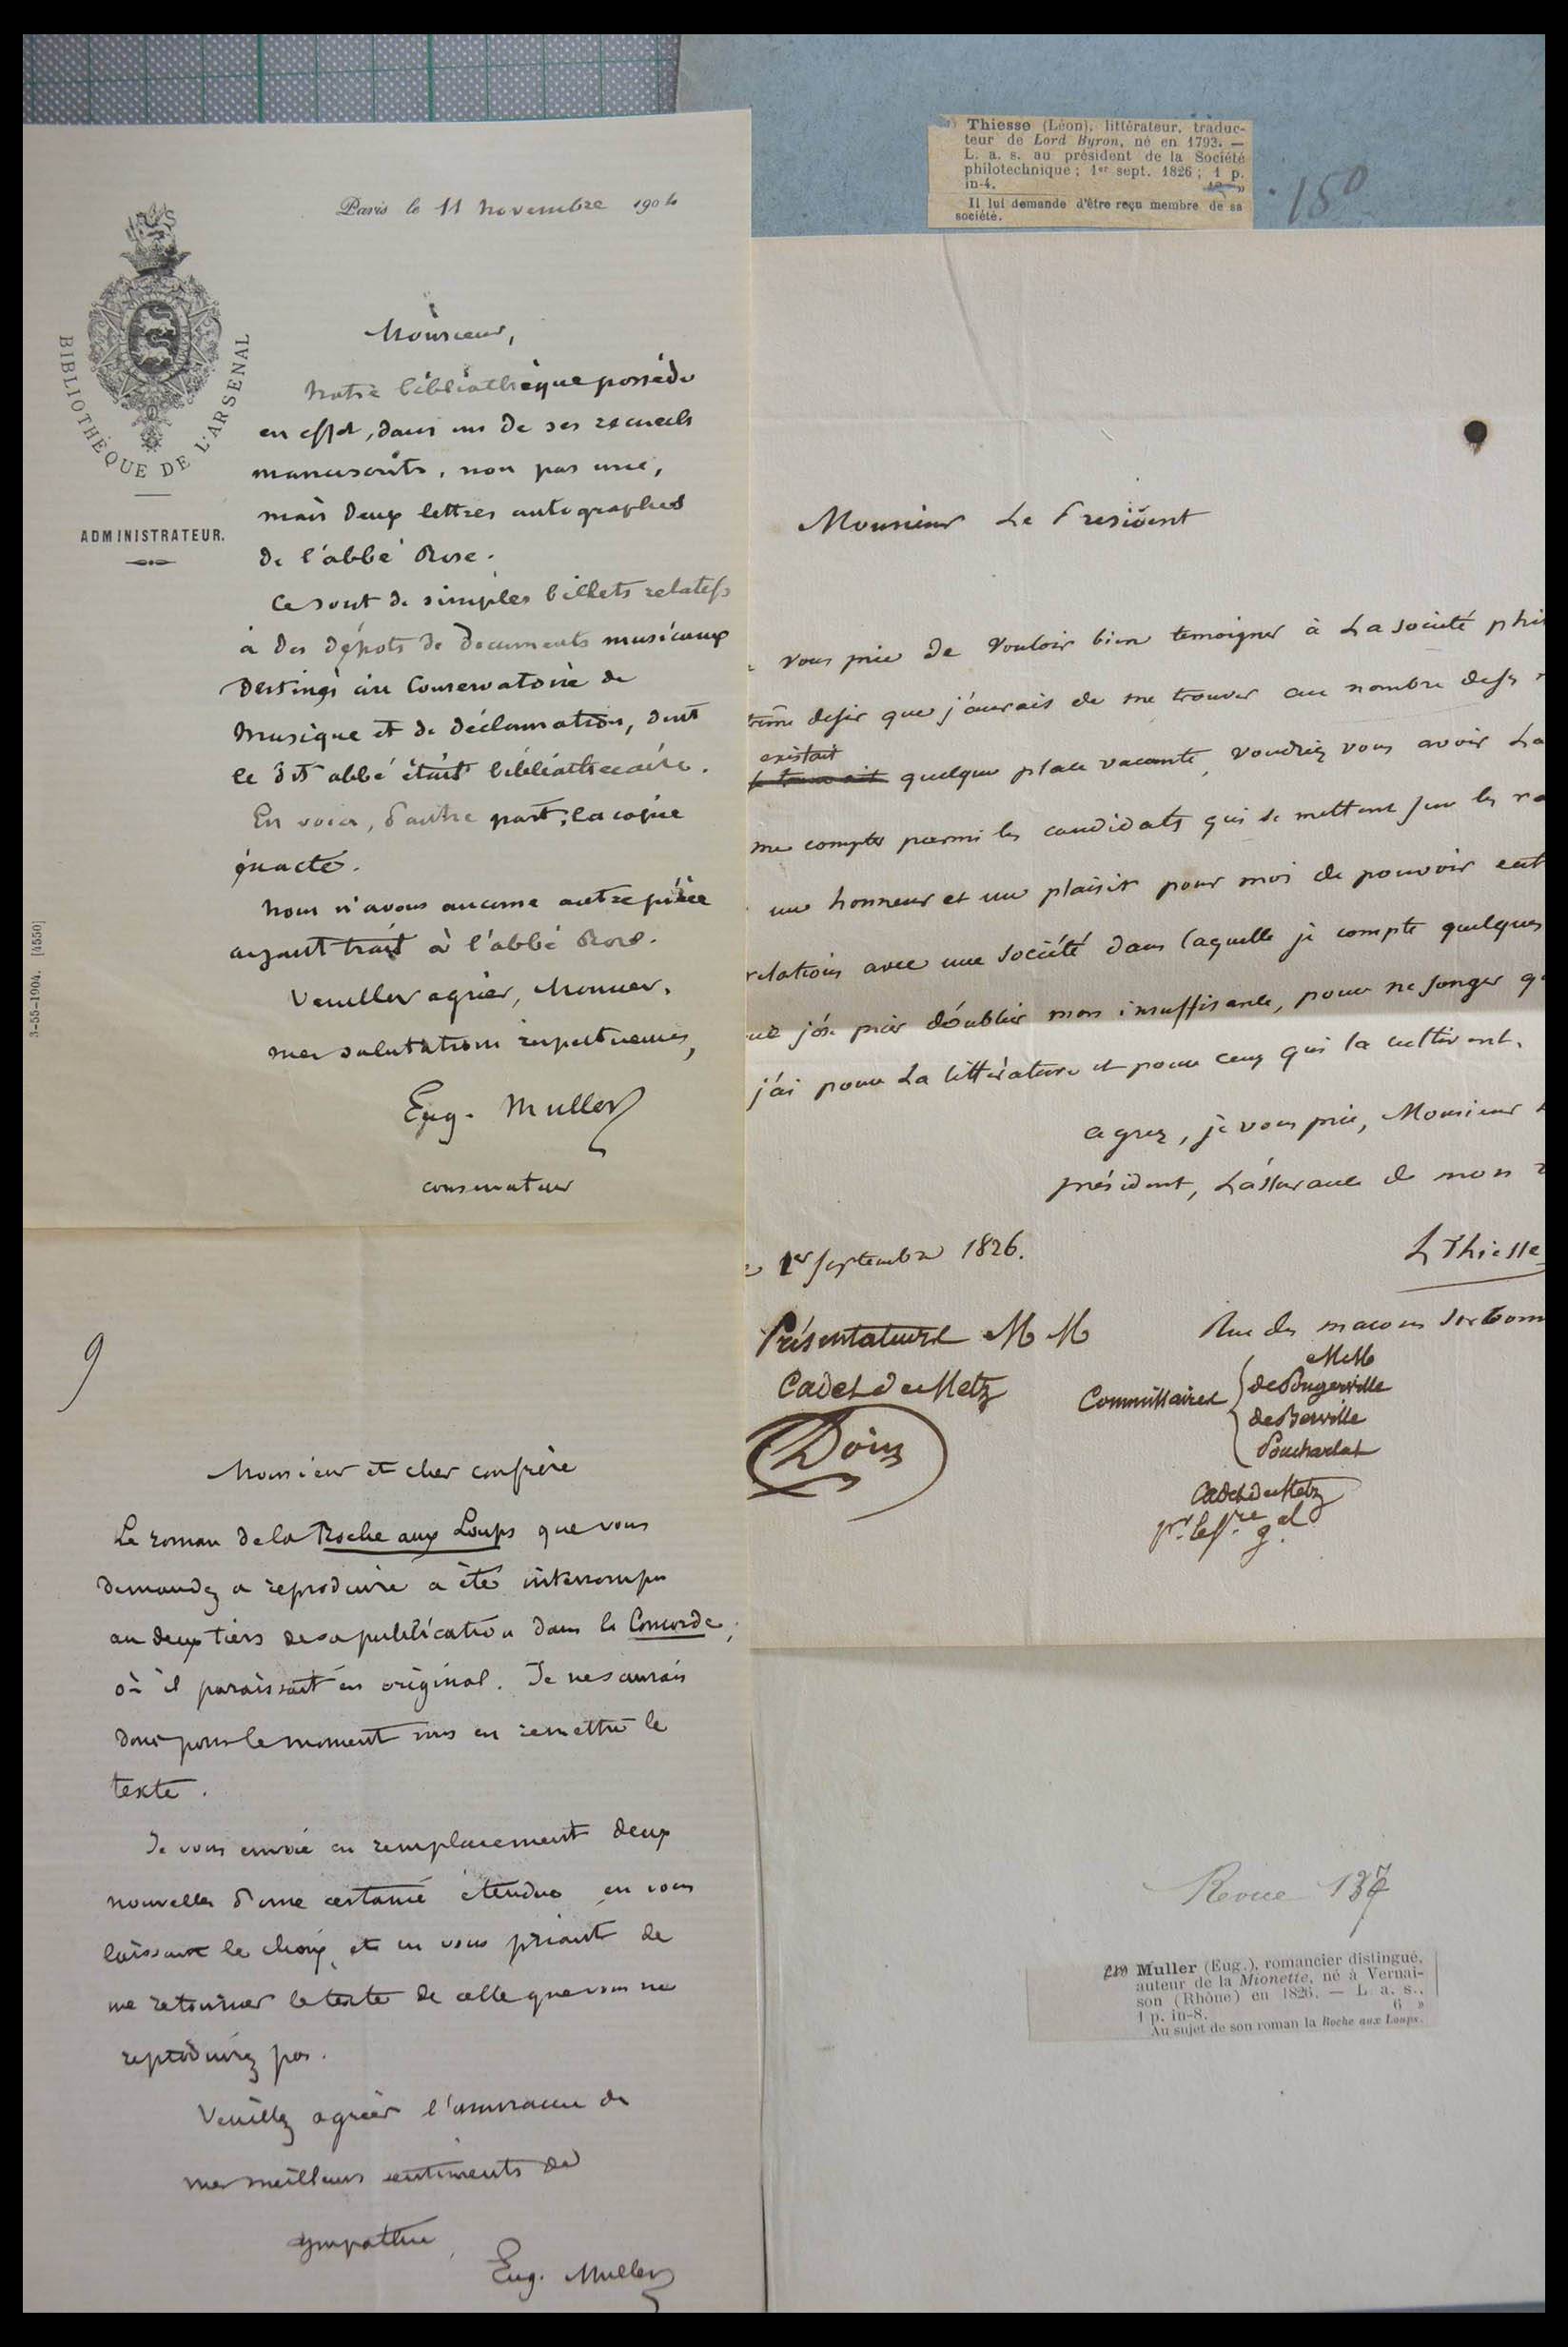 Paris le 11 novembre 1904
BIBLIOTHÈQUE DE L'ARSENAL
ADMINISTRATEUR.
3-55-1904. [4550]
Monsieur,
Notre bibliothèque possède
en effet, dans un de ses recueils
manuscrits, non pas une,
mais deux lettres autographes
de l'abbé Rose.
Ce sont de simples billets relatifs
à des dépots de documents musicaux
destinés au Conservatoire de
Musique et de déclamation, dont
le dit abbé était bibliothecaire.
En voici, d'autre part, la copie
exacte.
Nous n'avons aucune autre pièce
ayant trait à l'abbé Rose.
Veuillez agréer, Monsieur,
mes salutations respectueuses,
Eug. Muller
conservateur
9
Monsieur et cher confrère
Le roman de la Roche aux Loups que vous
demandez a reproduire a été interrompu
au deux tiers de sa publication dans la Concorde,
où il paraissait en original. Je ne saurais
donc pour le moment vous en remettre le
texte.
Je vous envoie en remplacement deux
nouvelles d'une certaine étendue en vous
laissant le choix, et en vous priant de
me retourner le texte de celle que vous ne
reproduirez pas.
Veuillez agréer l'assurance de
mes meilleurs sentiments de
sympathie,
Eug. Muller
Thiesse (Léon), littérateur, traduc-
teur de Lord Byron, né en 1793. —
L. a. s. au président de la Société
philotechnique; 1er sept. 1826; 1 p.
in-4. »
Il lui demande d'être reçu membre de sa
société.
150
Monsieur Le President
vous prie de vouloir bien temoigner à La societé phi
desir que j'aurais de me trouver au nombre de ses
existait
quelque place vacante, voudriez vous avoir La
me compter parmi les candidats qui se mettent sur les ra
un honneur et un plaisir pour moi de pouvoir ent
relations avec une société dans laquelle je compte quelques
j'ose prier d'oublier mon insuffisance, pour ne songer q
j'ai pour La littérature et pour ceux qui la cultivent.
agrez, je vous prie, Monsieur L
président, L'assurance de mon
1er septembre 1826.
L Thiesse
Rue des macons Sorbonn
Présentateurs MM
Cadet de Metz
Doin
Commissaires
MM
de Pongerville
de Berville
Boucharlat
Cadet de Metz
pr. le s.re g.al
Revue 137
219 Muller (Eug.), romancier distingué,
auteur de la Mionette, né à Vernai-
son (Rhône) en 1826. — L. a. s.,
1 p. in-8. 6 »
Au sujet de son roman la Roche aux Loups.